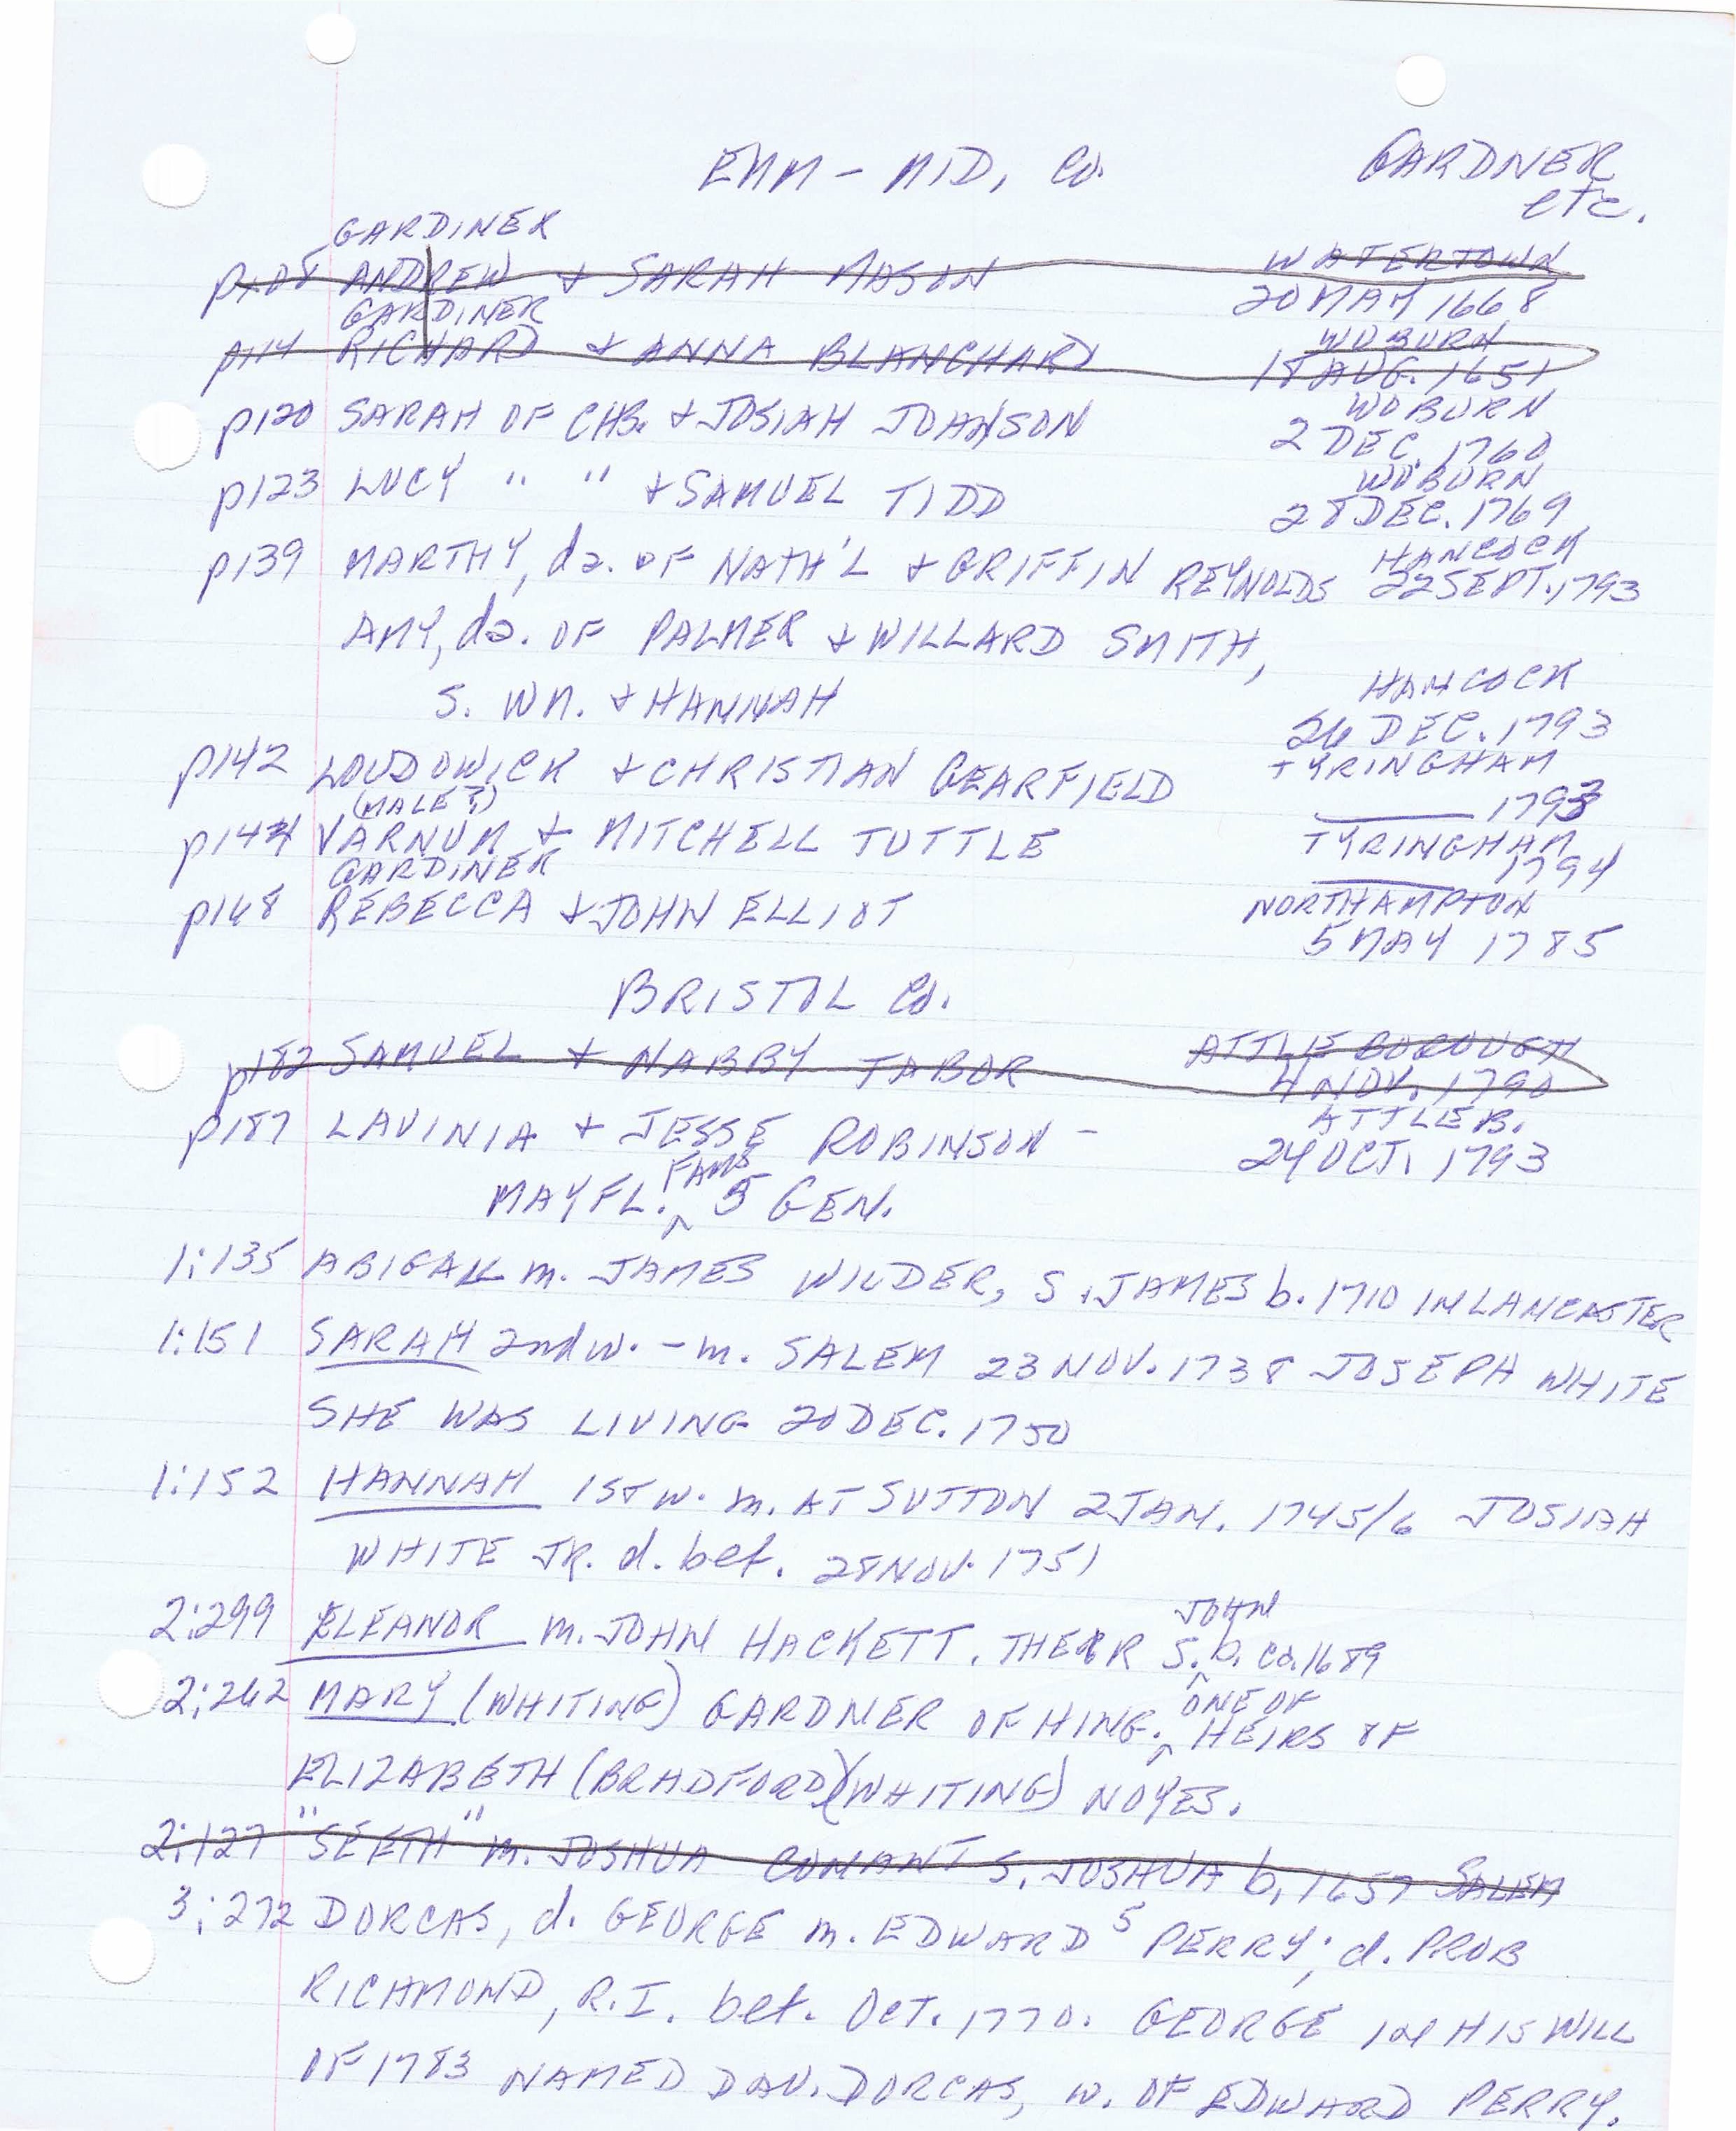 EMM - MID, Co.
GARDNER
etc.
GARDINER
p108 ANDREW & SARAH MASON WATERTOWN
20 MAY 1668
GARDINER
p114 RICHARD & ANNA BLANCHARD WOBURN
18 AUG. 1651
p120 SARAH OF CHS. & JOSIAH JOHNSON WOBURN
2 DEC. 1760
p123 LUCY " " & SAMUEL TIDD WOBURN
28 DEC. 1769
p139 MARTHY, da. OF NATH'L & GRIFFIN REYNOLDS HANCOCK
22 SEPT. 1793
AMY, da. OF PALMER & WILLARD SMITH,
S. WM. & HANNAH HANCOCK
26 DEC. 1793
p142 LOUDOWICK & CHRISTIAN GEARFIELD TYRINGHAM
1793
(MALE?)
p144 VARNUM & MITCHELL TUTTLE TYRINGHAM
1794
GARDINER
p168 REBECCA & JOHN ELLIOT NORTHAMPTON
5 MAY 1785
BRISTOL Co.
p182 SAMUEL & NABBY TABOR ATTLEBOROUGH
4 NOV. 1790
p187 LAVINIA & JESSE ROBINSON - ATTLEB.
24 OCT. 1793
MAYFL. FAMS 5 GEN.
1:135 ABIGAIL m. JAMES WILDER, S. JAMES b. 1710 IN LANCASTER
1:151 SARAH 2nd w. - m. SALEM 23 NOV. 1738 JOSEPH WHITE
SHE WAS LIVING 20 DEC. 1750
1:152 HANNAH 1ST w. m. AT SUTTON 2 JAN. 1745/6 JOSIAH
WHITE JR. d. bef. 28 NOV. 1751
2:299 ELEANOR m. JOHN HACKETT. THEIR S. JOHN b. ca. 1689
2:262 MARY (WHITING) GARDNER OF HING. ONE OF HEIRS OF
ELIZABETH (BRADFORD)(WHITING) NOYES.
2:127 "SEETH" m. JOSHUA CONANT S. JOSHUA b. 1657 SALEM
3:272 DORCAS, d. GEORGE m. EDWARD 5 PERRY; d. PROB
RICHMOND, R.I. bef. OCT. 1770. GEORGE IN HIS WILL
OF 1783 NAMED DAU. DORCAS, w. OF EDWARD PERRY.